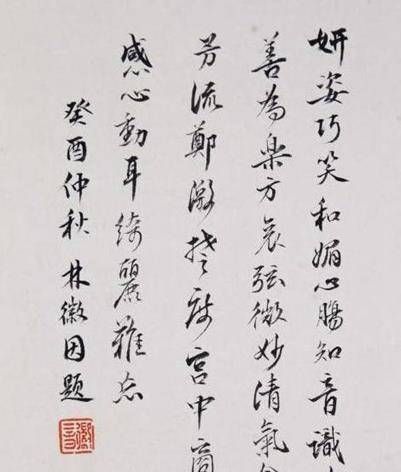 妍姿巧笑和媚心腸知音識
善為楽方哀弦微妙清氣
芳流鄭激楚度宮中商
感心動耳綺麗難忘
癸酉仲秋 林徽因題
徽音